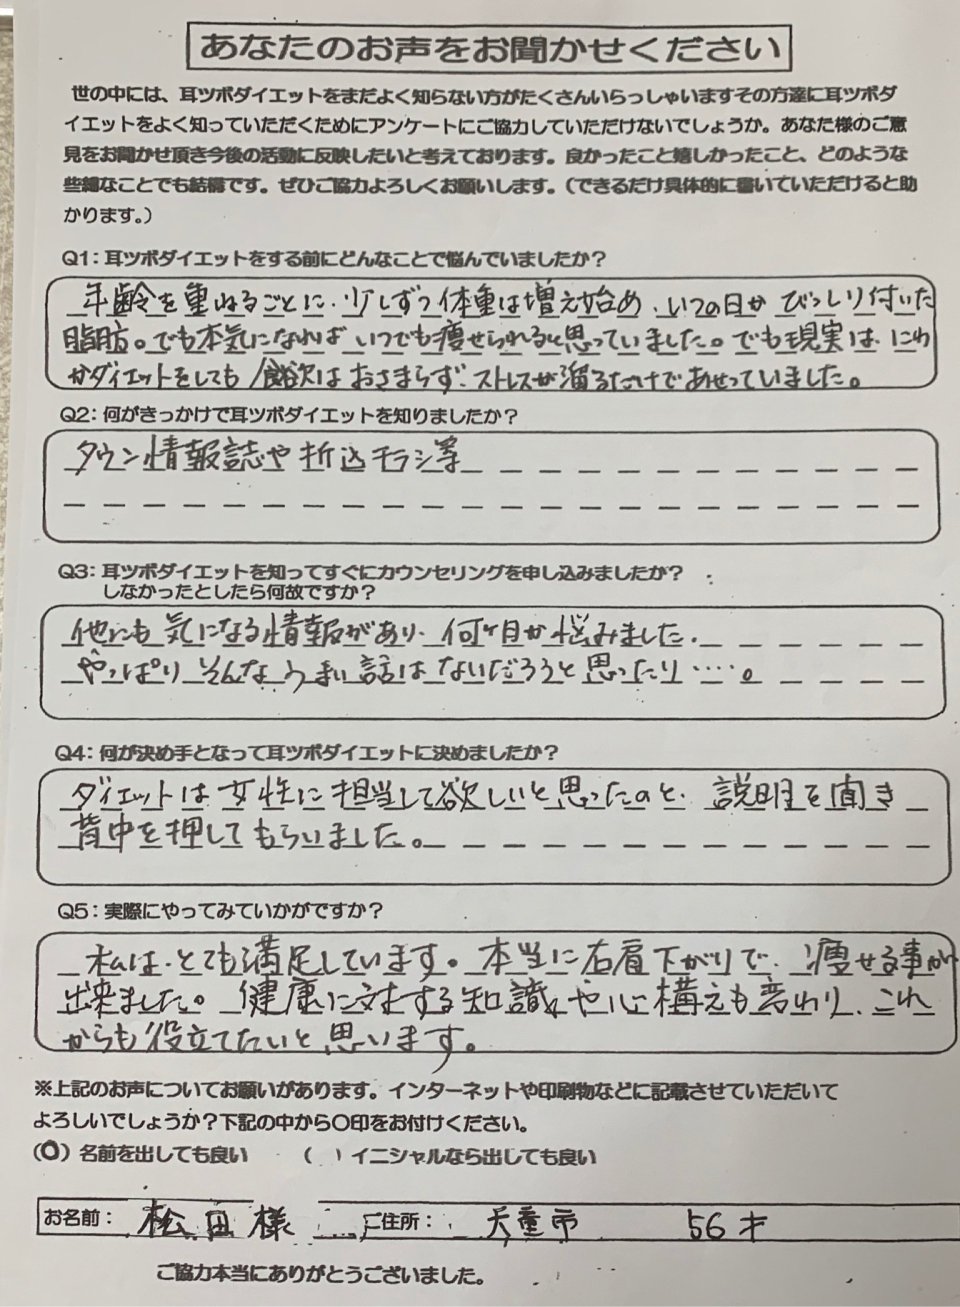 あなたのお声をお聞かせください
世の中には、耳ツボダイエットをまだよく知らない方がたくさんいらっしゃいますその方達に耳ツボダ
イエットをよく知っていただくためにアンケートにご協力していただけないでしょうか。あなた様のご意
見をお聞かせ頂き今後の活動に反映したいと考えております。良かったこと嬉しかったこと、どのような
些細なことでも結構です。ぜひご協力よろしくお願いします。（できるだけ具体的に書いていただけると助
かります。）
Q1：耳ツボダイエットをする前にどんなことで悩んでいましたか？
年齢を重ねるごとに、少しずつ体重は増え始め、いつの日か びっしり付いた
脂肪。でも本気になれば いつでも痩せられると思っていました。でも現実は、にわ
かダイエットをしても 食欲は おさまらず、ストレスが溜るだけで あせっていました。
Q2：何がきっかけで耳ツボダイエットを知りましたか？
タウン情報誌や 折込チラシ等
Q3：耳ツボダイエットを知ってすぐにカウンセリングを申し込みましたか？
しなかったとしたら何故ですか？
他にも 気になる情報があり、何ヶ月か 悩みました、
やっぱり そんな うまい 話は ないだろうと 思ったり ‥‥。
Q4：何が決め手となって耳ツボダイエットに決めましたか？
ダイエットは 女性に 担当して欲しいと 思ったのと、説明を聞き
背中を押して もらいました。
Q5：実際にやってみていかがですか？
私は、とても満足しています。本当に右肩下がりで、痩せる事が
出来ました。健康に対する知識や心構えも変わり、これ
からも役立てたいと 思います。
※上記のお声についてお願いがあります。インターネットや印刷物などに記載させていただいて
よろしいでしょうか？下記の中から〇印をお付けください。
（○）名前を出しても良い （ ）イニシャルなら出しても良い
お名前： 松田様 ご住所： 天童市 56才
ご協力本当にありがとうございました。